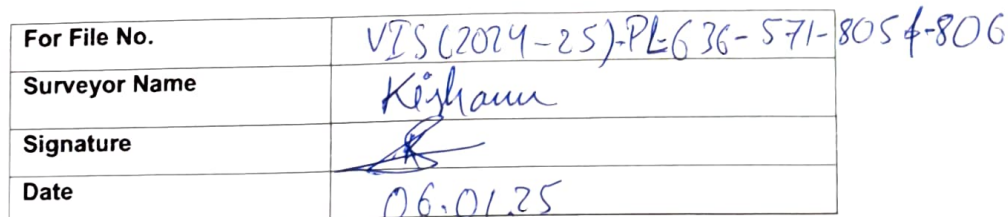 For File No. VIS(2024-25)-PL-636-571-805 & 806
Surveyor Name
Signature
Date 06.01.25